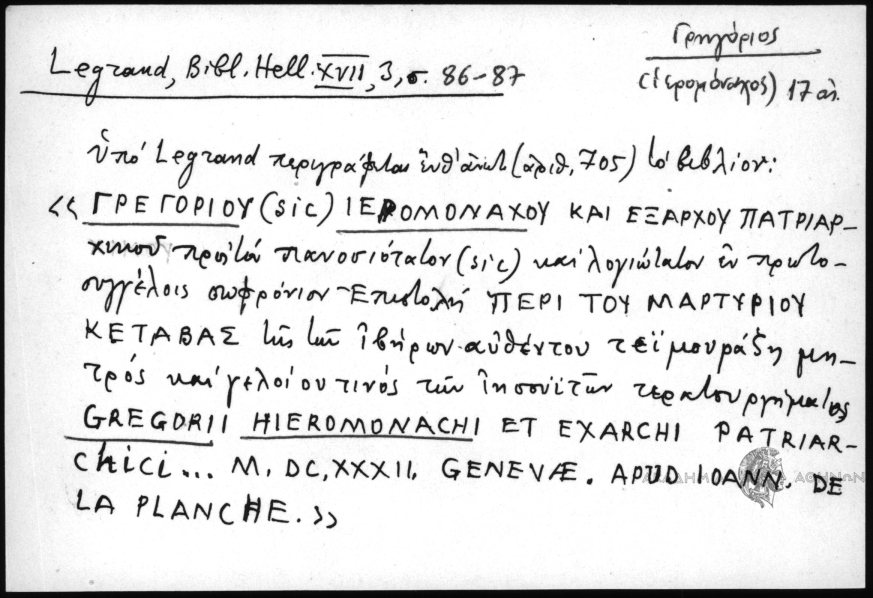 Γρηγόριος
(ἱερομόναχος) 17 αἰ.
Legrand, Bibl. Hell. XVII, 3, σ. 86-87
ὑπό Legrand περιγράφεται ἐνθ' ἀνωτ. (ἀριθ. 705) τό βιβλίον:
<< ΓΡΕΓΟΡΙΟΥ (sic) ΙΕΡΟΜΟΝΑΧΟΥ ΚΑΙ ΕΞΑΡΧΟΥ ΠΑΤΡΙΑΡ-
χικοῦ πρός τόν πανοσιότατον (sic) καί λογιώτατον ἐν πρωτο-
συγγέλοις σωφρόνιον Ἐπιστολή ΠΕΡΙ ΤΟΥ ΜΑΡΤΥΡΙΟΥ
ΚΕΤΑΒΑΣ τῆς τῶν ἰβήρων αὐθέντου τεϊμουράζη μη-
τρός καί γελοίου τινός τῶν ἰησουϊτῶν τερατουργήματος
GREGORII HIEROMONACHI ET EXARCHI PATRIAR-
chici... M. DC, XXXII, GENEVÆ. APUD IOANN. DE
LA PLANCHE. >>
ΑΚΑΔΗΜΙΑ ΑΘΗΝΩΝ